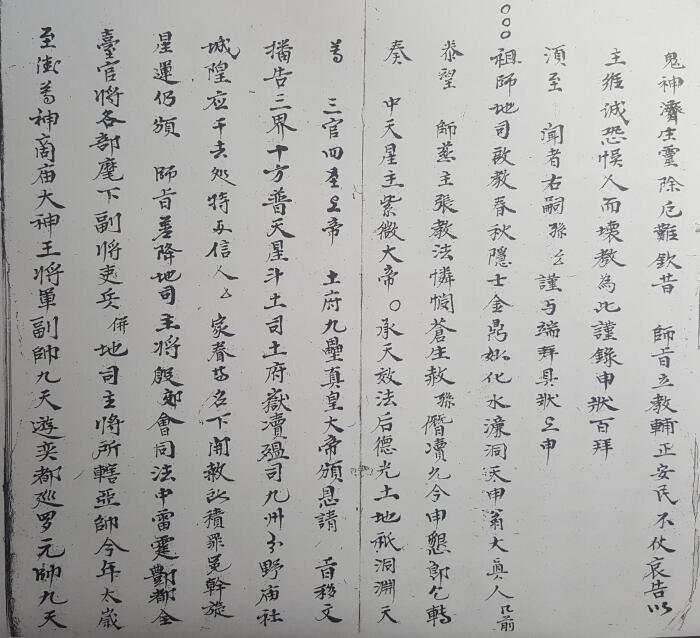 鬼神濟生靈除厄難欽昔　師旨立教輔正安民不仗哀告以
主維诚恐悞人而壞教為此謹錄申狀百拜
須至　聞者右嗣孫厶謹与端拜具狀上申
祖師地司啟教春秋隱士金鼎妙化水濂洞天申翁大真人 口前
恭望　師慈主張教法憐悯蒼生赦孫僭瀆允今申懇即乞轉
奏　中天星主紫微大帝〇承天效法后德光土地祇洞淵天
尊　三官四圣上帝　土府九壘真皇大帝頒恩請　旨移文
播告三界十方普天星斗土司土府嶽瀆瘟司九州分野庙社
城隍应干去处特与信人厶家眷等名下開赦所積罪冤斡旋
星運仍頒　師旨差降地司主将殷郊會同法中雷霆酆都全
臺官将各部麾下副将吏兵併地司主将所轄亞帥今年太歲
至德尊神啇庙大神王将軍副帥九天遊奕都廵罗元帅九天